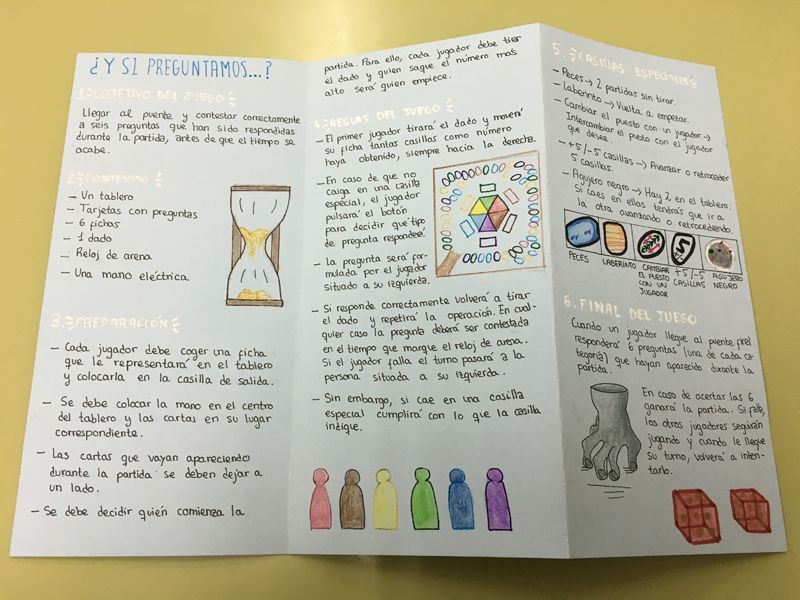 ¿Y SI PREGUNTAMOS...?
1. OBJETIVO DEL JUEGO
Llegar al puente y contestar correctamente
a seis preguntas que han sido respondidas
durante la partida, antes de que el tiempo se
acabe.
2. CONTENIDO
- Un tablero
- Tarjetas con preguntas
- 6 fichas
- 1 dado
- Reloj de arena
- Una mano eléctrica
3. PREPARACIÓN
- Cada jugador debe coger una ficha
que le representará en el tablero
y colocarla en la casilla de salida.
- Se debe colocar la mano en el centro
del tablero y las cartas en su lugar
correspondiente.
- Las cartas que vayan apareciendo
durante la partida se deben dejar a
un lado.
- Se debe decidir quién comienza la
partida. Para ello, cada jugador debe tirar
el dado y quien saque el número más
alto será quien empiece.
4. REGLAS DEL JUEGO
- El primer jugador tirará el dado y moverá
su ficha tantas casillas como número
haya obtenido, siempre hacia la derecha.
- En caso de que no
caiga en una casilla
especial, el jugador
pulsará el botón
para decidir qué tipo
de pregunta responderá.
- La pregunta será for-
mulada por el jugador
situado a su izquierda.
- Si responde correctamente volverá a tirar
el dado y repetirá la operación. En cual-
quier caso la pregunta deberá ser contestada
en el tiempo que marque el reloj de arena.
Si el jugador falla el turno pasará a la
persona situada a su izquierda.
- Sin embargo, si cae en una casilla
especial cumplirá con lo que la casilla
indique.
5. CASILLAS ESPECIALES
- Peces → 2 partidas sin tirar.
- Laberinto → Vuelta a empezar.
- Cambiar el puesto con un jugador →
Intercambiar el puesto con el jugador
que desee.
- +5/-5 casillas → Avanzar o retroceder
5 casillas.
- Agujero negro → Hay 2 en el tablero.
Si caes en ellas tendrás que ir a
la otra avanzando o retrocediendo.
+5
-5
PECES
LABERINTO
CAMBIAR
EL PUESTO
CON UN
JUGADOR
+5/-5
CASILLAS
AGUJERO
NEGRO
6. FINAL DEL JUEGO
Cuando un jugador llegue al puente final
responderá 6 preguntas (una de cada ca-
tegoría) que hayan aparecido durante la
partida.
En caso de acertar las 6
ganará la partida. Si falla,
los otros jugadores seguirán
jugando y cuando le llegue
su turno, volverá a inten-
tarlo.